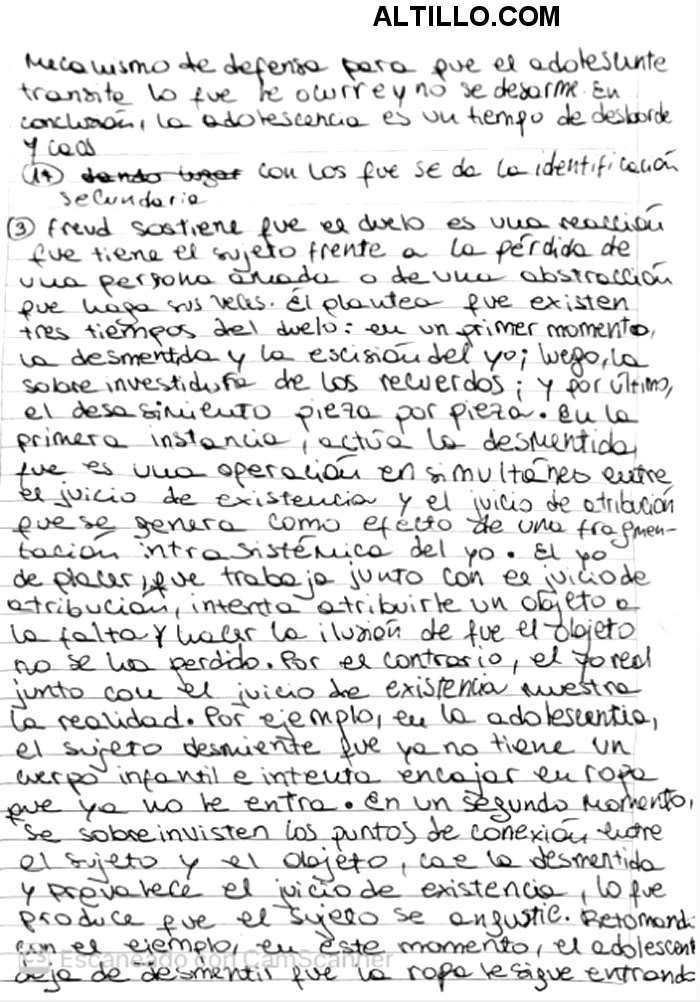 ALTILLO.COM
Mecanismo de defensa para que el adolescente
transite lo que le ocurre y no se desarme. En
conclusión, la adolescencia es un tiempo de desborde
y caos
(1*) dando lugar con los que se da la identificación
secundaria
③ Freud sostiene que el duelo es una reacción
que tiene el sujeto frente a la pérdida de
una persona amada o de una abstracción
que haga sus veces. Él plantea que existen
tres tiempos del duelo: en un primer momento,
la desmentida y la escisión del yo; luego, la
sobreinvestidura de los recuerdos; y por último,
el desasimiento pieza por pieza. En la
primera instancia, actúa la desmentida,
que es una operación en simultáneo entre
el juicio de existencia y el juicio de atribución
que se genera como efecto de una fragmen-
tación intrasistémica del yo. El yo
de placer, que trabaja junto con el juicio de
atribución, intenta atribuirle un objeto a
la falta y hacer la ilusión de que el objeto
no se ha perdido. Por el contrario, el yo real
junto con el juicio de existencia muestra
la realidad. Por ejemplo, en la adolescentia,
el sujeto desmiente que ya no tiene un
cuerpo infantil e intenta encajar en ropa
que ya no le entra. En un segundo momento,
se sobreinvisten los puntos de conexión entre
el sujeto y el objeto, cae la desmentida
y prevalece el juicio de existencia, lo que
produce que el sujeto se angustie. Retomand
con el ejemplo, en este momento, el adolescent
deja de desmentir que la ropa le sigue entrando
Escaneado con CamScanner